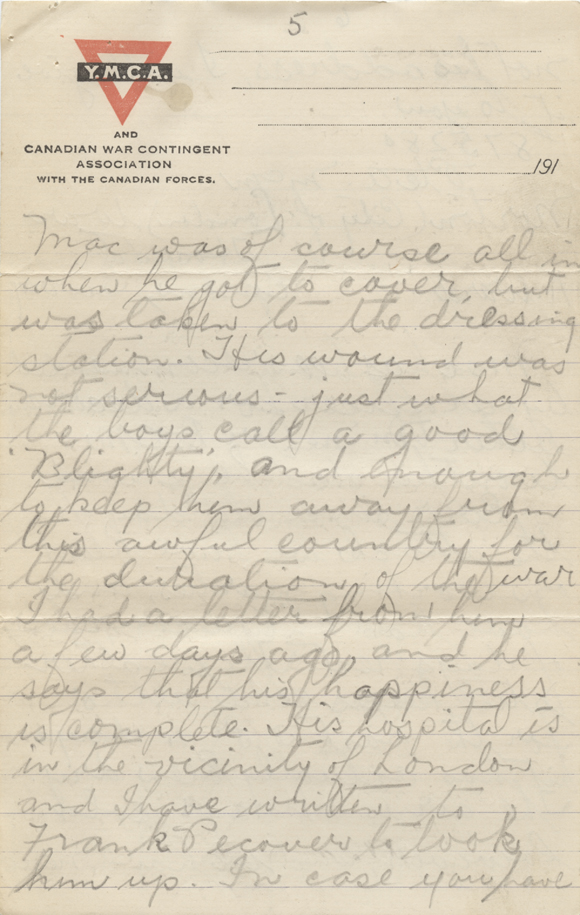 5
Y.M.C.A.
AND
CANADIAN WAR CONTINGENT
ASSOCIATION
WITH THE CANADIAN FORCES.
191
Mac was of course all in
when he got to cover, but
was taken to the dressing
station. His wound was
not serious - just what
the boys call a good
'Blighty', and enough
to keep him away from
this awful country for
the duration of the war
I had a letter from him
a few days ago, and he
says that his happiness
is complete. His hospital is
in the vicinity of London
and I have written to
Frank Pecover to look
him up. In case you have